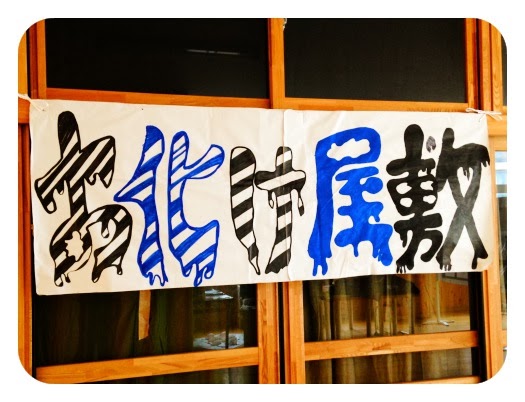 お化け屋敷